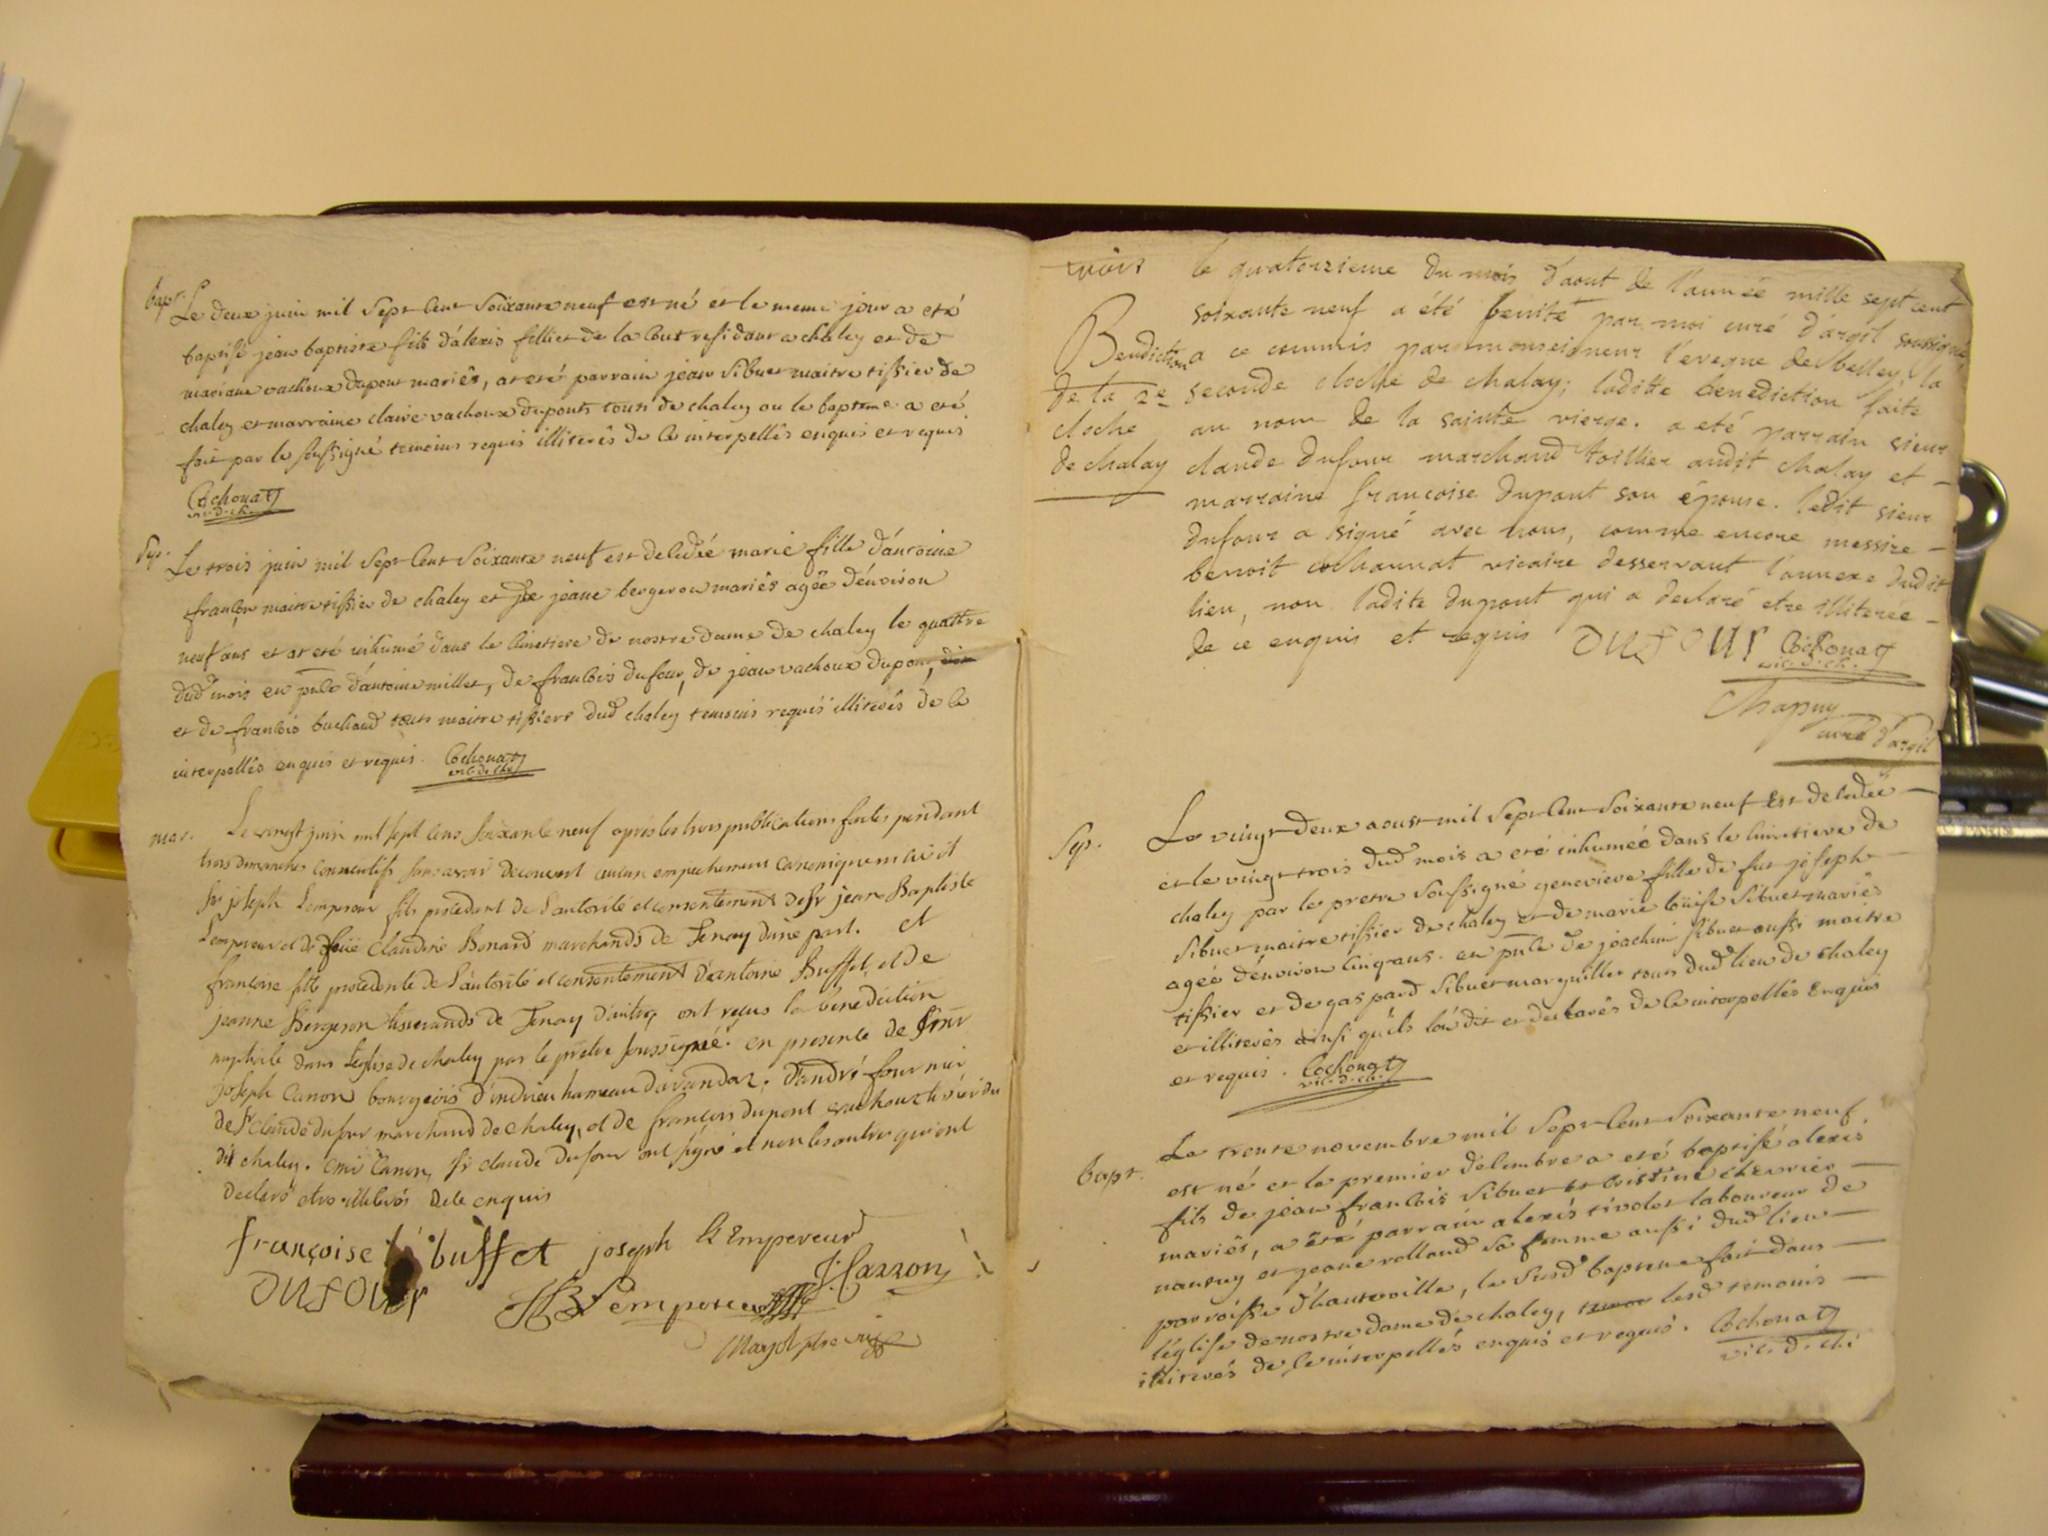 bapt. Le deux juin mil Sept Cent Soixante neuf est né et le meme jour a eté
baptisé jean baptiste fils d'alexis fillier de la Cout residant a chaley et de
mariane vachoux dupont mariés, at eté parrain jean Sibuet maitre tissier de
chaley et marraine claire vachoux duponts tous de chaley ou le bapteme a eté
fait par le soussigné temoins requis illiterés de ce interpellés enquis et requis
Cochonat
vic. d. ch.
Sep. Le trois juin mil Sept Cent Soixante neuf est decedée marie fille d'antoine
francon maitre tissier de chaley et de jeane bergeron mariés agée d'environ
neuf ans et at eté inhumé dans le Cimetiere de nostre dame de chaley le quattre
dud mois en pnce d'antoine millet, de francois dufour, de jean vachoux dupont,
et de francois buchaud tous maitre tissiers dud chaley temoins requis illiterés de ce
interpellés enquis et requis. Cochonat
vic. d. ch.
mar. Le vingt juin mil sept cens soixante neuf apres les trois publications faites pendant
trois dimanches consecutifs sans avoir decouvert aucun empechement canonique ni civil
Sr joseph Lempereur fils procedant de l'autorité et consentement de Sr jean Baptiste
Lempereur et de Claudine Bonard marchands de Tenay d'une part. et
françoise fille procedente de l'autorité et consentement d'antoine Buffet et de
jeanne Bergeron tisserands de Tenay d'autre ont reçus la benediction
nuptiale dans l'eglise de chaley par le prêtre soussigné. en presence de
joseph Canon bourgeois d'indrieu hameau d'arandaz. d'andré fournier
de Sr claude dufour marchand de chaley, et de françois dupont vachoux
dit chaley. Canon, Sr claude dufour ont signé et non les autres qui ont
declaré etre illiterés de ce enquis
françoise buffet joseph lempereur
DUFOUR Lempereur J. Carron
Marjol ptre
le quatorzieme du mois d'aout de l'année mille sept cent
soixante neuf a été benite par moi curé d'argil soussigné
Benediction a ce commis par monseigneur l'eveque de belley la
de la 2e seconde cloche de chaley; laditte benediction faite
cloche au nom de la sainte vierge. a eté parrain sieur
de chalay claude dufour marchand toillier audit chalay et
marraine francoise dupont son épouse. ledit sieur
dufour a signé avec nous, comme encore messire
benoit cochonnat vicaire desservant l'annexe dudit
lieu, non ladite dupont qui a declaré etre illiterée
de ce enquis et requis DUFOUR Cochonat
vic. d. ch.
Chapuy
curé d'argil
Sep. Le vingt deux aoust mil Sept Cent Soixante neuf Est decedée
et le vingt trois dud mois a eté inhumée dans le cimetiere de
chaley par le pretre soussigné genevieve fille de fut joseph
Sibuet maitre tissier de chaley et de marie loüise Sibuet mariés
agée d'environ Cinq ans. en pnce de joachim Sibuet aussi maitre
tissier et de gaspard Sibuet marguillier tous dud lieu de chaley
et illiterés ainsi qu'ils l'on dit et declarés de ce interpellés Enquis
et requis. Cochonat
vic. d. ch.
bapt. Le trente novembre mil Sept Cent Soixante neuf
est né et le premier décembre a eté baptisé alexis
fils de jean francois Sibuet et cristine chevrier
mariés, a eté parrain alexis tivolet laboureur de
nantuy et jeane rolland sa femme aussi dud lieu
parroisse d'hauteville, le susd bapteme fait dans
l'eglise de nostre dame de chaley, lesd temoins
illiterés de ce interpellés enquis et requis. Cochonat
vic. d. ch.